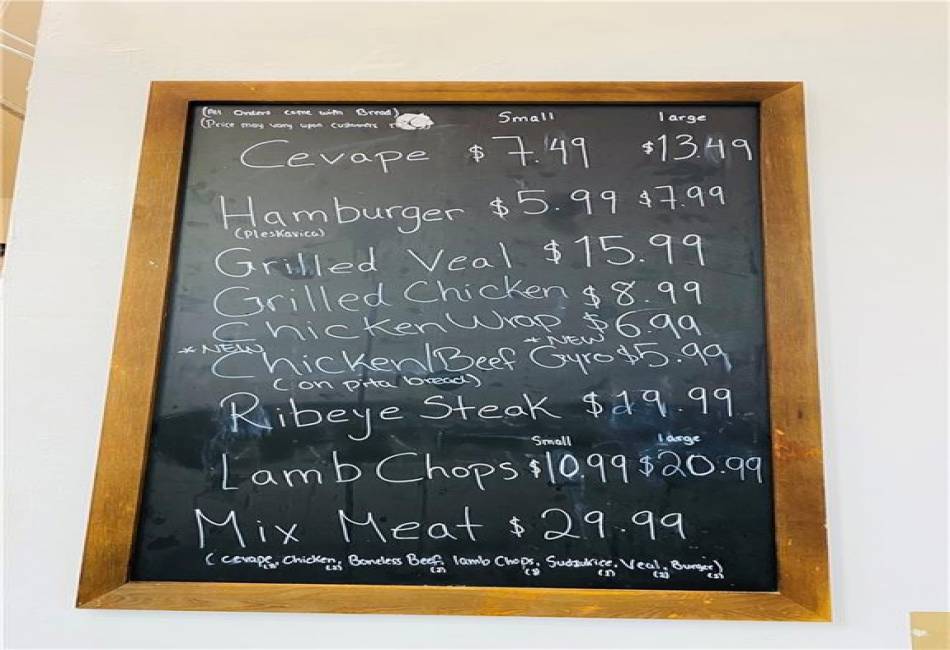 (All Orders come with Bread)
(Price may vary upon customers
Small large
Cevape $7.49 $13.49
Hamburger $5.99 $7.99
(Pleskavica)
Grilled Veal $15.99
Grilled Chicken $8.99
Chicken Wrap $6.99
*NEW *NEW
Chicken/Beef Gyro $5.99
(on pita bread)
Ribeye Steak $19.99
Small large
Lamb Chops $10.99 $20.99
Mix Meat $29.99
(Cevape, Chicken, Boneless Beef, lamb Chops, Sudzukice, Veal, Burger)